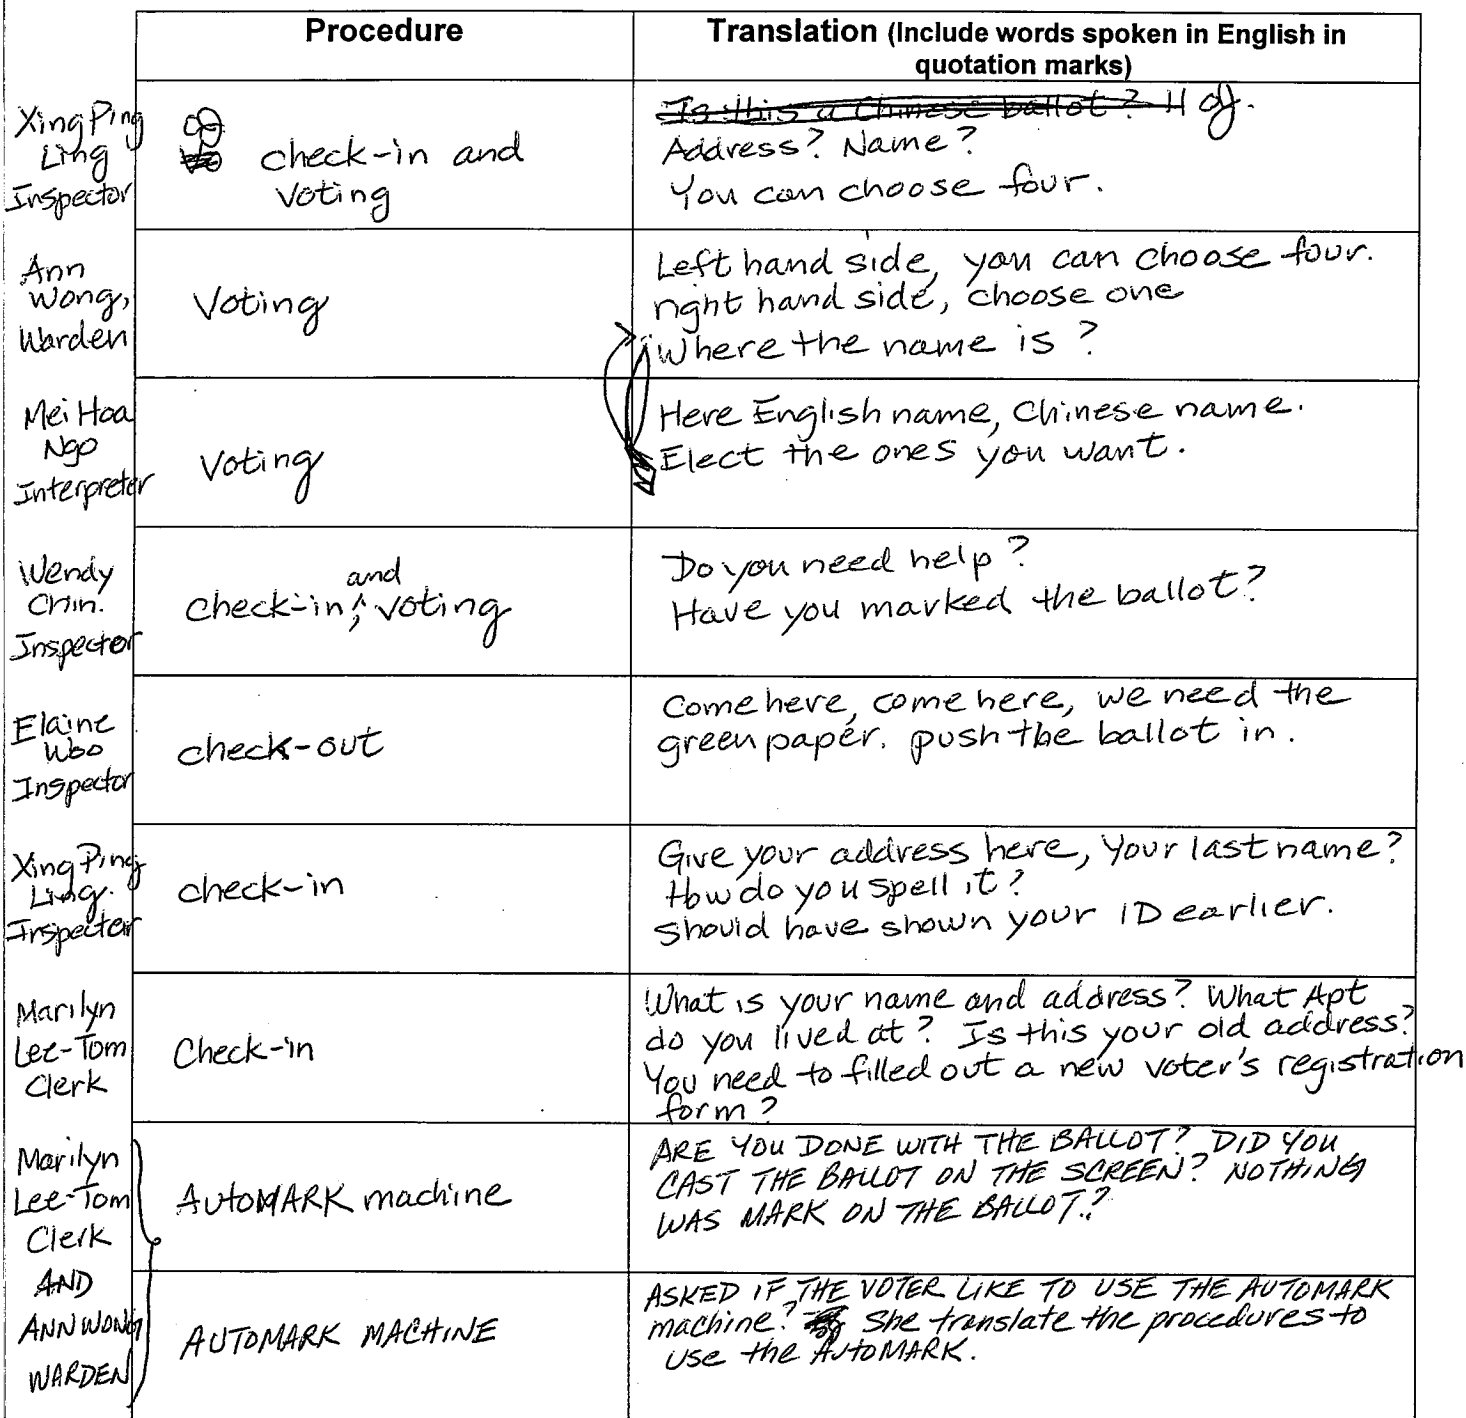 Procedure
Translation (Include words spoken in English in
quotation marks)
Xing Ping
Ling
Inspector
check-in and
voting
Is this a Chinese ballot?
Address? Name?
You can choose four.
Ann
Wong,
Warden
Voting
Left hand side, you can choose four.
right hand side, choose one
Where the name is?
Mei Hoa
Ngo
Interpreter
Voting
Here English name, Chinese name.
Elect the ones you want.
Wendy
Chin.
Inspector
and
check-in, voting
Do you need help?
Have you marked the ballot?
Elaine
Woo
Inspector
check-out
Come here, come here, we need the
green paper. push the ballot in.
Xing Ping
Ling.
Inspector
check-in
Give your address here, Your last name?
How do you spell it?
Should have shown your ID earlier.
Marilyn
Lee-Tom
Clerk
Check-in
What is your name and address? What Apt
do you lived at? Is this your old address?
You need to filled out a new voter's registration
form?
Marilyn
Lee-Tom
Clerk
AND
ANN WONG
WARDEN
AutoMARK machine
ARE YOU DONE WITH THE BALLOT? DID YOU
CAST THE BALLOT ON THE SCREEN? NOTHING
WAS MARK ON THE BALLOT.?
AUTOMARK MACHINE
ASKED IF THE VOTER LIKE TO USE THE AUTOMARK
machine? She translate the procedures to
use the AutoMARK.